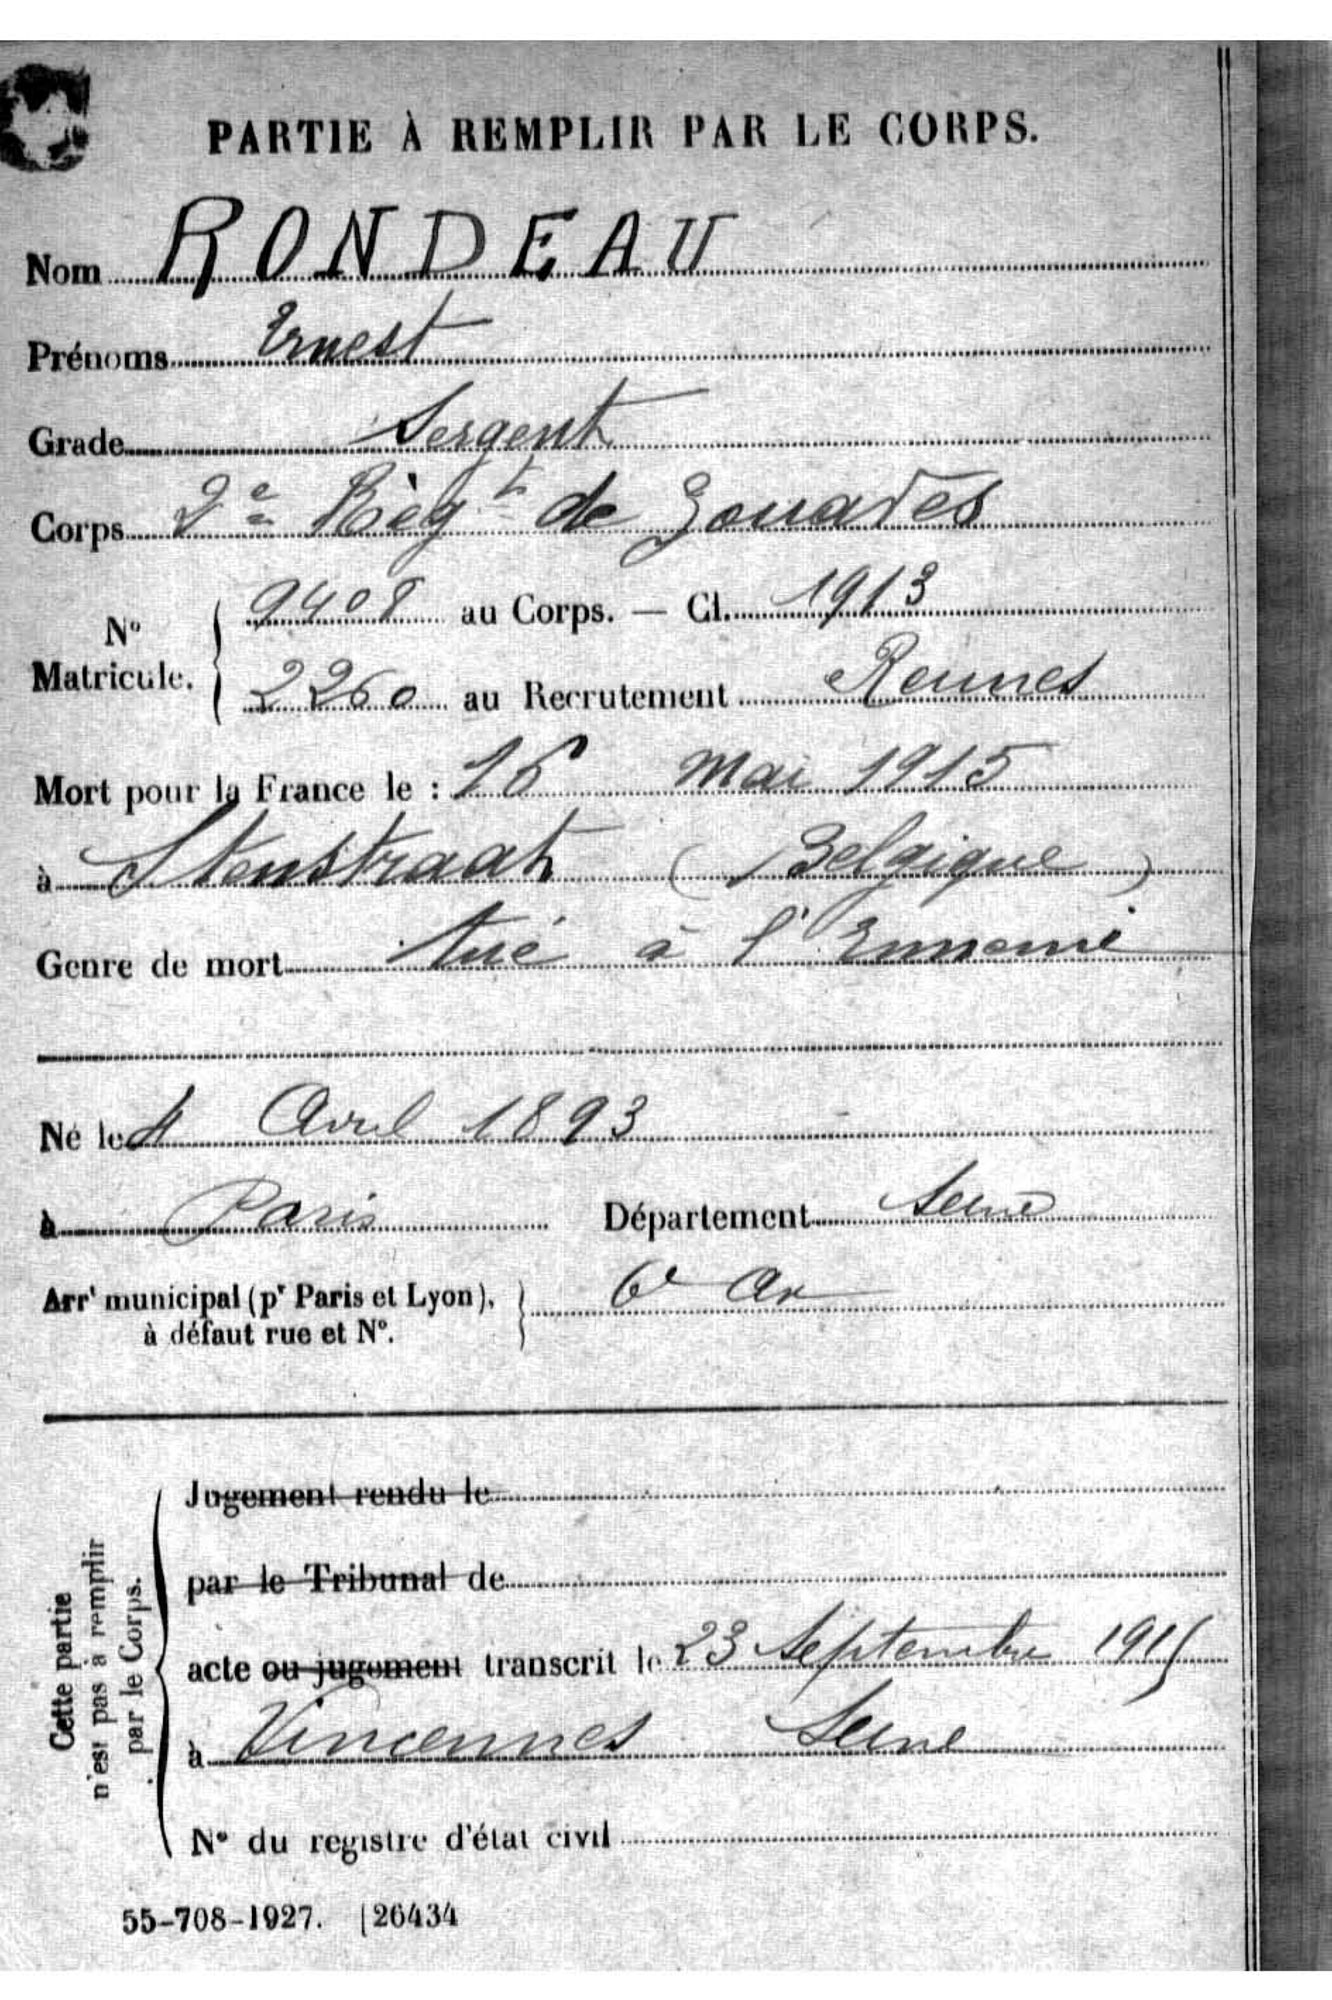 PARTIE À REMPLIR PAR LE CORPS.
Nom RONDEAU
Prénoms Ernest
Grade Sergent
Corps 2e Règt de Zouaves
N° Matricule. 9408 au Corps. — Cl. 1913
2260 au Recrutement Rennes
Mort pour la France le : 16 mai 1915
à Stenstraat (Belgique)
Genre de mort tué à l'Ennemi
Né le 4 Avril 1893
à Paris Département Seine
Arrt municipal (pr Paris et Lyon), 6e Ar
à défaut rue et N°.
Cette partie
n'est pas à remplir
par le Corps.
Jugement rendu le
par le Tribunal de
acte ou jugement transcrit le 23 Septembre 1915
à Vincennes Seine
N° du registre d'état civil
55-708-1927. [26434